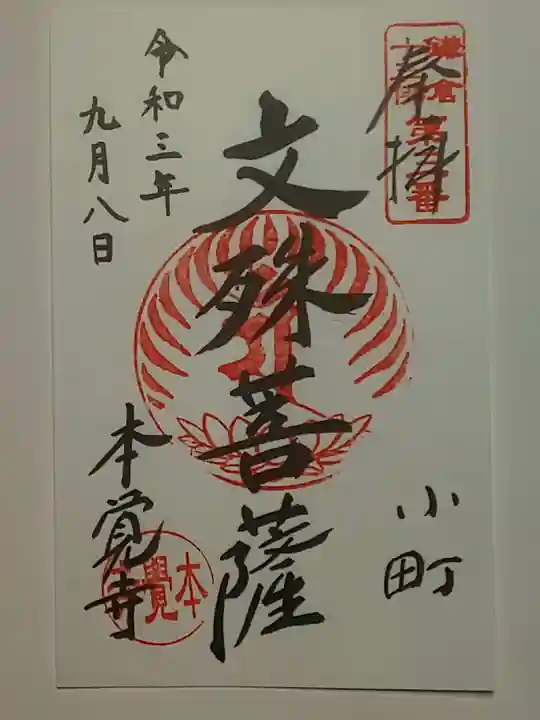 奉拝
鎌倉
第三番
小町
文殊菩薩
令和三年
九月八日
本覚寺
本覺